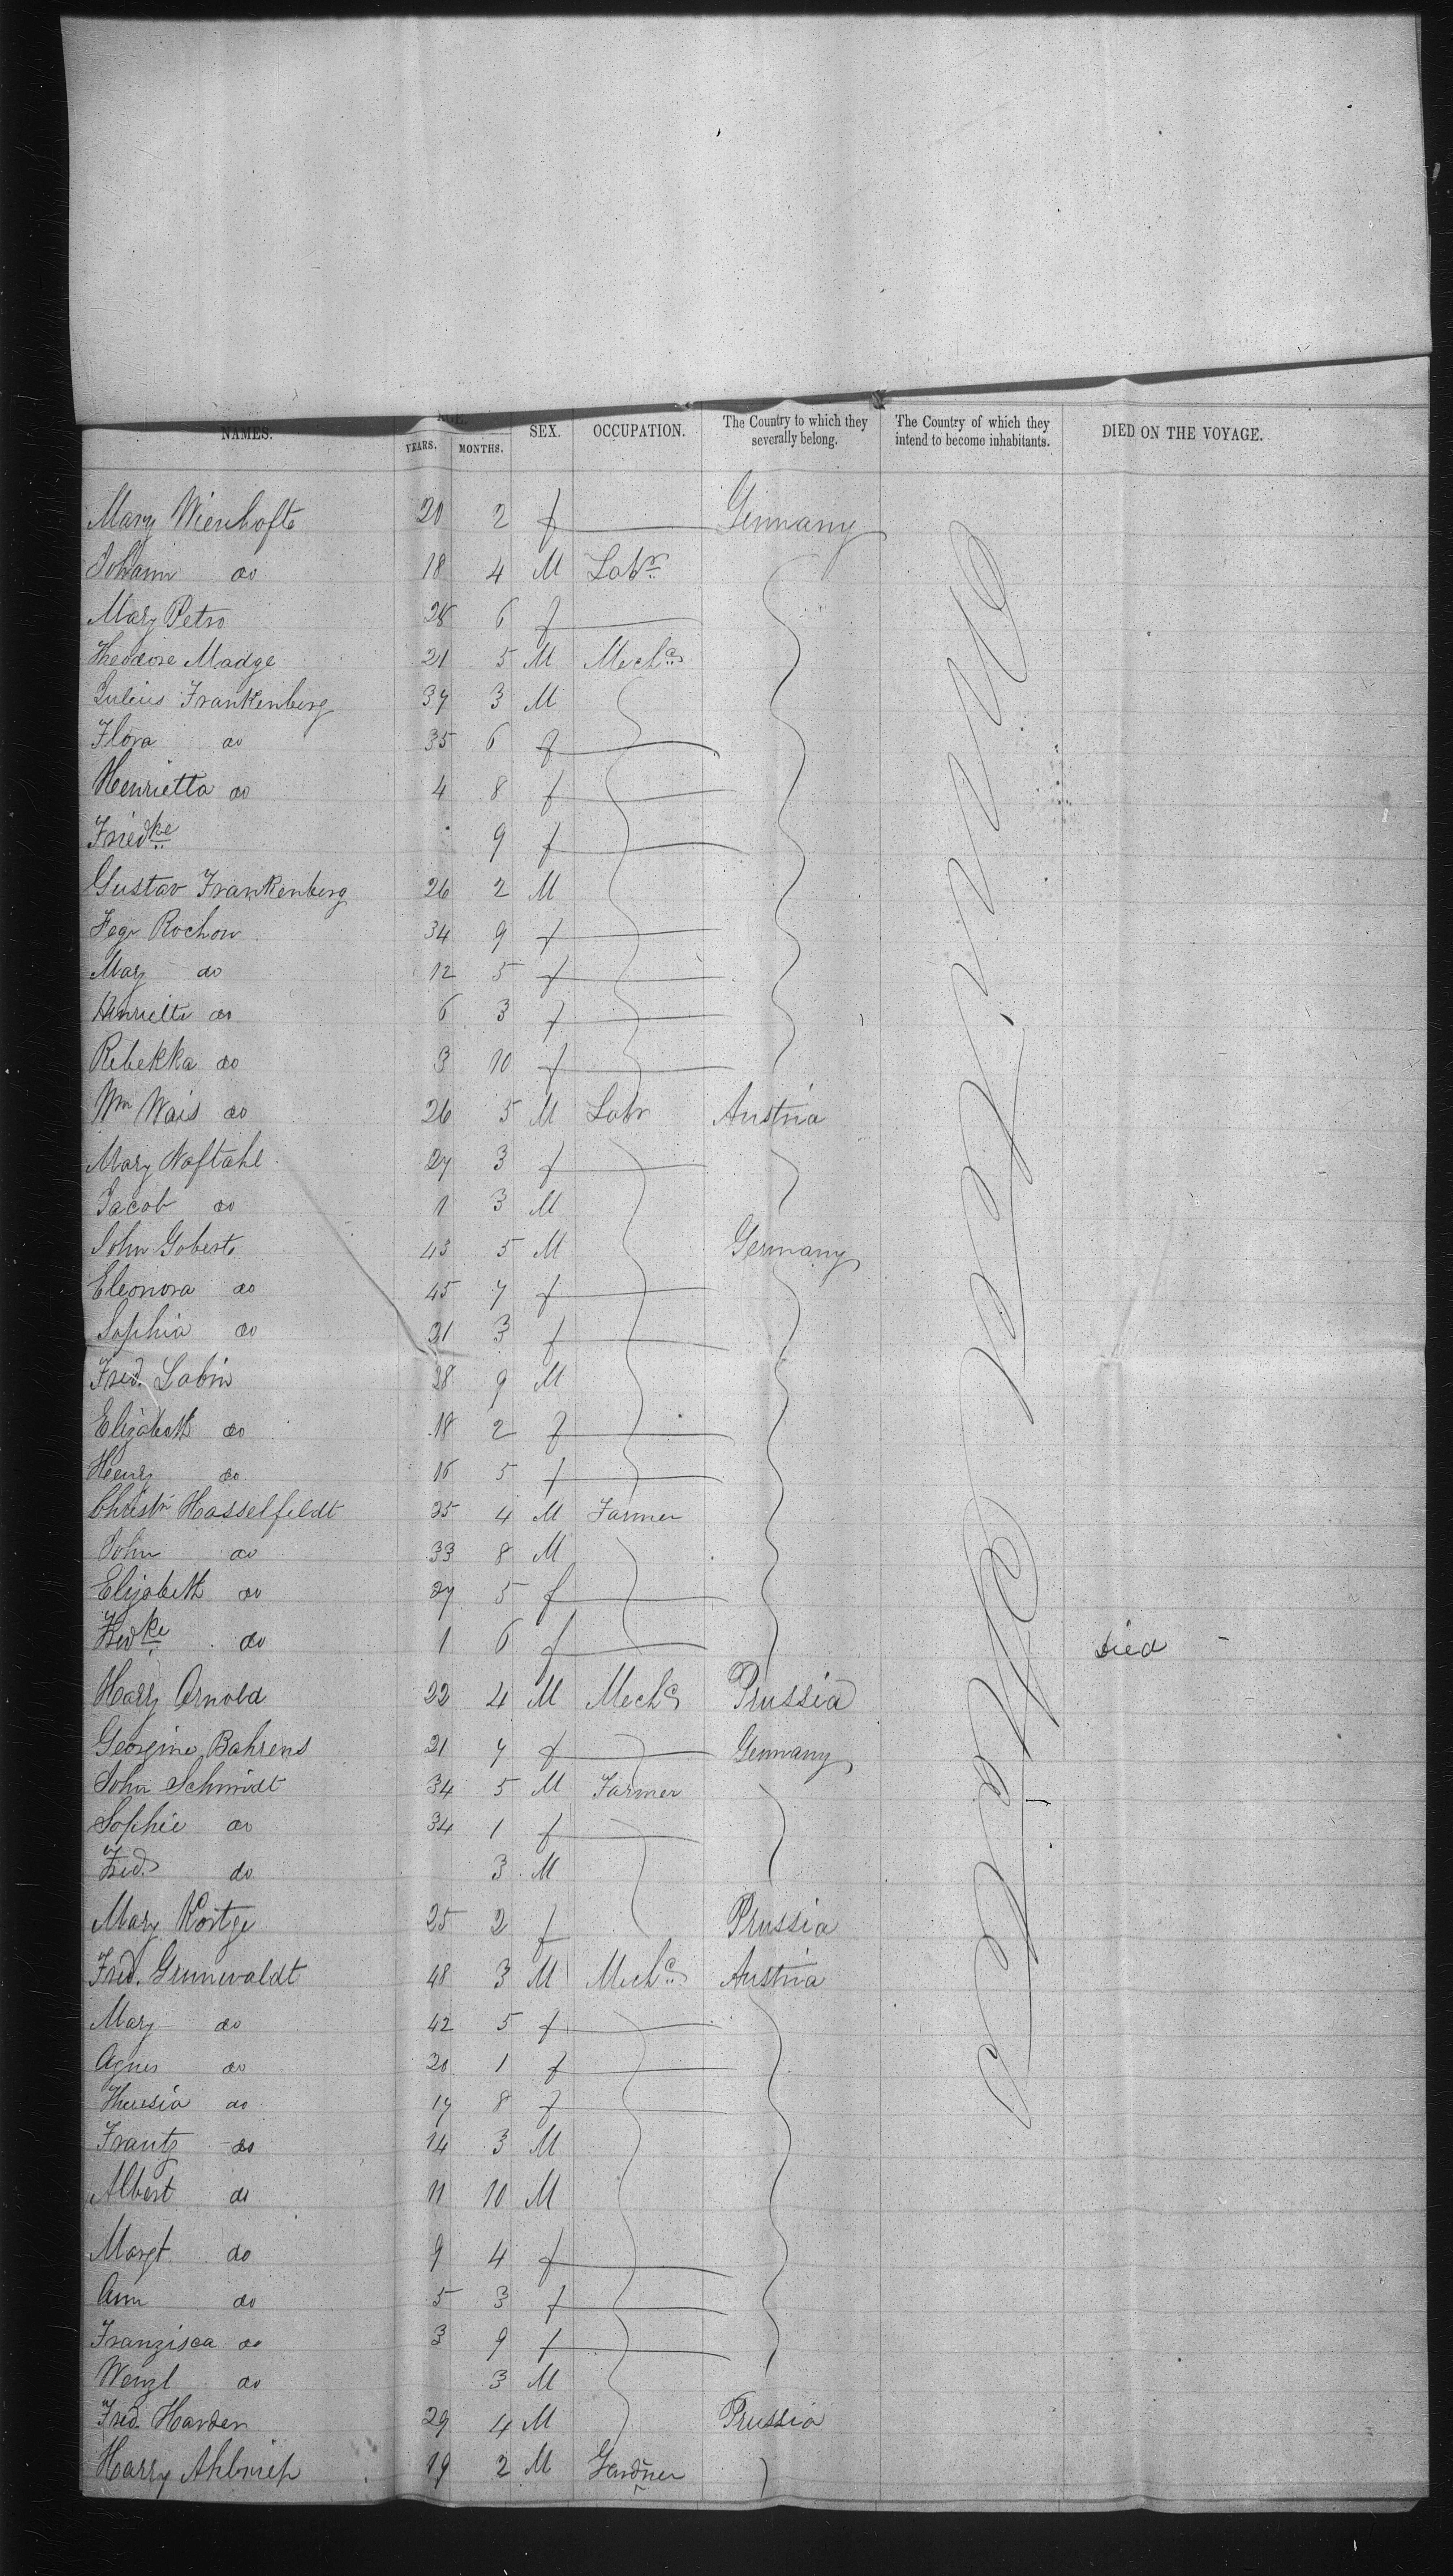 NAMES. AGE. SEX. OCCUPATION. The Country to which they severally belong. The Country of which they intend to become inhabitants. DIED ON THE VOYAGE.
YEARS. MONTHS.
Mary Wienhofts 20 2 f Germany
Johann do 18 4 M Labr
Mary Petro 28 6 f
Theodore Madge 21 5 M Mechc
Julius Frankenberg 37 3 M
Flora do 35 6 f
Henrietta do 4 8 f
Friedke 9 f
Gustav Frankenberg 26 2 M
Fege Rochow 34 9 f
Mary do 12 5 f
Henriette do 6 3 f
Rebekka do 3 10 f
Wm Wais do 26 5 M Labr Austria
Mary Naftahl 27 3 f
Jacob do 1 3 M
John Goberts 43 5 M Germany
Eleonora do 45 7 f
Sophia do 21 3 f
Fred. Labin 28 9 M
Elizabeth do 18 2 f
Henry do 16 5 f
Christn Hasselfeldt 25 4 M Farmer
John do 33 8 M
Elizabeth do 27 5 f
Fredke do 1 6 f Died
Harry Arnold 22 4 M Mechc Prussia
Georgine Bahrens 21 7 f Germany
John Schmidt 34 5 M Farmer
Sophie do 34 1 f
Fred. do 3 M
Mary Kortge 25 2 f Prussia
Fred. Grunwaldt 48 3 M Mechc Austria
Mary do 42 5 f
Agnes do 20 1 f
Theresia do 17 8 f
Frantz do 14 3 M
Albert do 11 10 M
Margt do 9 4 f
Ann do 5 3 f
Franzisca do 3 9 f
Wenzl do 3 M
Fred. Harder 29 4 M Prussia
Harry 19 2 M Gardner